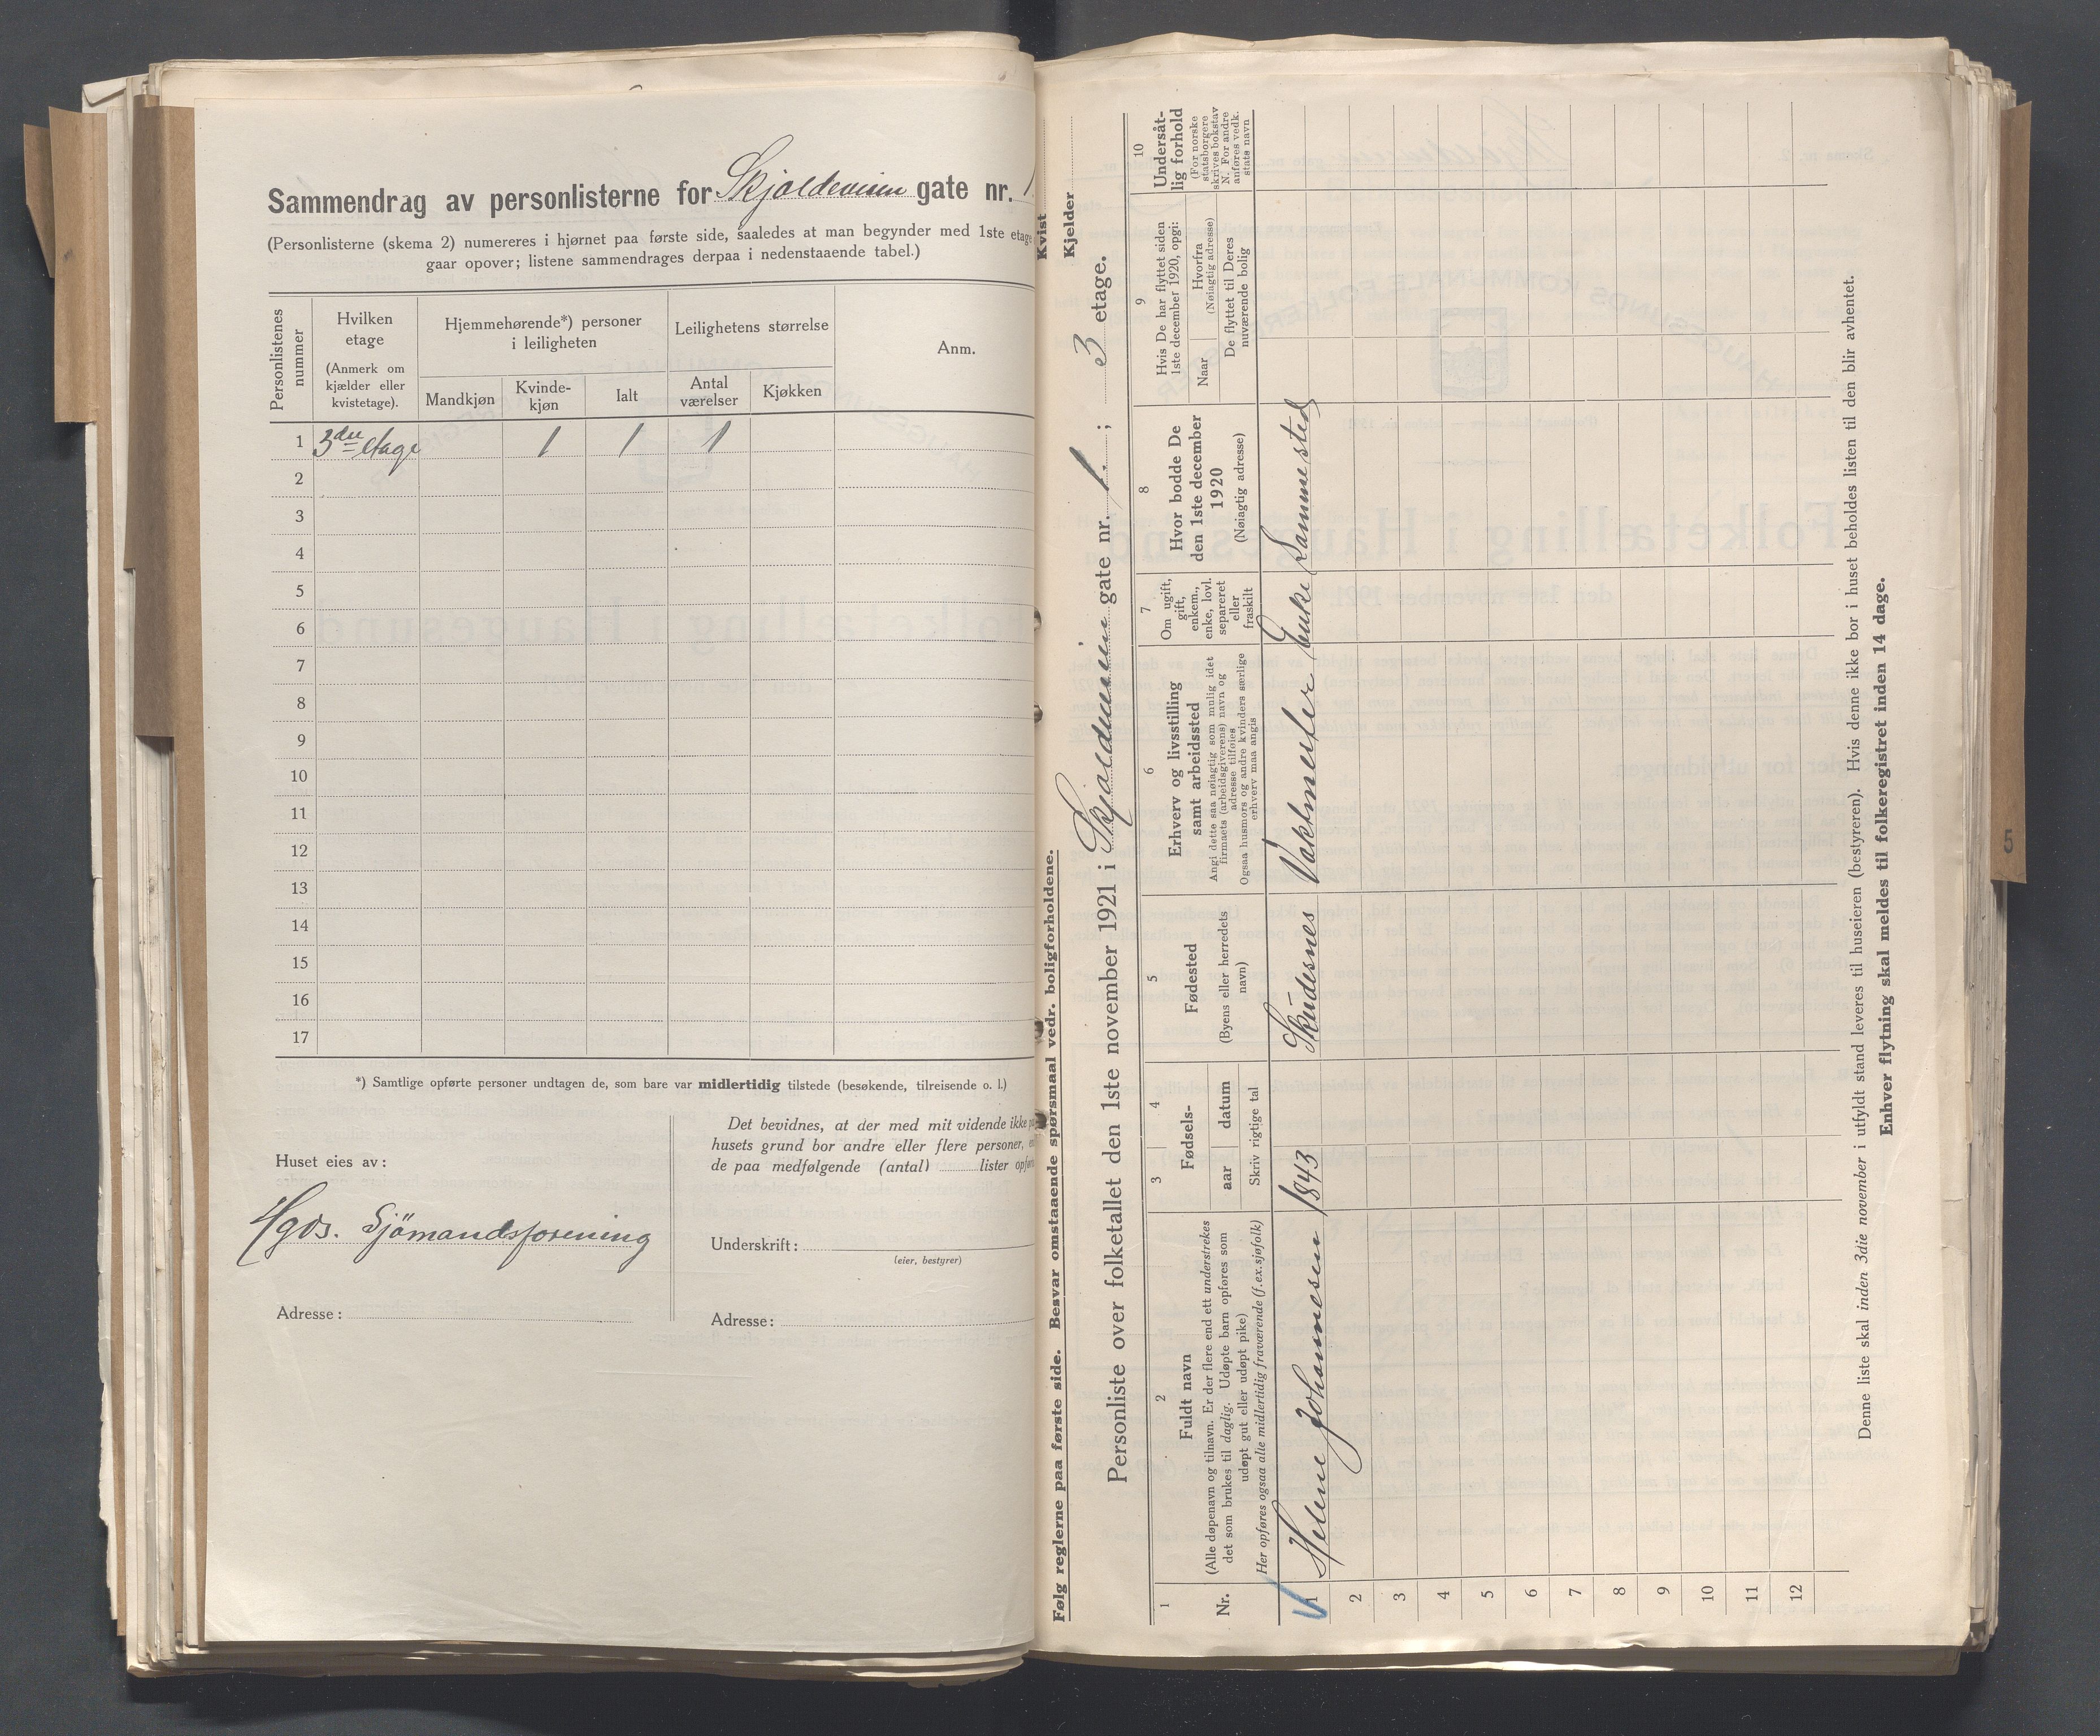 Sammendrag av personlisterne for Skjoldeveien gate nr. 1.
(Personlisterne (skema 2) numereres i hjørnet paa første side, saaledes at man begynder med 1ste etage
gaar opover; listene sammendrages derpaa i nedenstaaende tabel.)
Personlistenes nummer
Hvilken etage
(Anmerk om kjælder eller kvistetage).
Hjemmehørende*) personer i leiligheten
Mandkjøn
Kvinde-kjøn
Ialt
Leilighetens størrelse
Antal værelser
Kjøkken
Anm.
1 3die etage 1 1 1
2
3
4
5
6
7
8
9
10
11
12
13
14
15
16
17
*) Samtlige opførte personer undtagen de, som bare var midlertidig tilstede (besøkende, tilreisende o. l.)
Huset eies av:
Hgds. Sjömandsforening
Adresse:
Det bevidnes, at der med mit vidende ikke
husets grund bor andre eller flere personer,
de paa medfølgende (antal) lister
Underskrift:
(eier, bestyrer)
Adresse:
Følg reglerne paa første side. Besvar omstaaende spørsmaal vedr. boligforholdene.
Kvist
Kjelder
Personliste over folketallet den 1ste november 1921 i Skjoldeveien gate nr. 1. ; 3 etage.
1
Nr.
2
Fuldt navn
(Alle døpenavn og tilnavn. Er der flere end ett understrekes
det som brukes til daglig. Udøpte barn opføres som
udøpt gut eller udøpt pike)
Her opføres ogsaa alle midlertidig fraværende (f. ex. sjøfolk)
3 4
Fødsels-
aar datum
Skriv rigtige tal
5
Fødested
(Byens eller herredets navn)
6
Erhverv og livsstilling
samt arbeidssted
Angi dette saa nøiagtig som mulig idet
firmaets (arbeidsgiverens) navn og
adresse tilføies
Ogsaa husmors og andre kvinders særlige
erhverv maa angis
7
Om ugift,
gift,
enkem.,
enke, lovl.
separeret
eller
fraskilt
8
Hvor bodde De
den 1ste december
1920
(Nøiagtig adresse)
9
Hvis De har flyttet siden
1ste december 1920, opgi:
Naar
Hvorfra
(Nøiagtig adresse)
De flyttet til Deres
nuværende bolig
10
Undersåt-
lig forhold
(For norske
statsborgere
skrives bokstav
N. For andre
anføres vedk.
stats navn
1 Helene Johannesen 1843 Skudesnes Vaktmester Enke Sammested
2
3
4
5
6
7
8
9
10
11
12
Denne liste skal inden 3die november i utfyldt stand leveres til huseieren (bestyreren). Hvis denne ikke bor i huset beholdes listen til den blir avhentet.
Enhver flytning skal meldes til folkeregistret inden 14 dage.
5